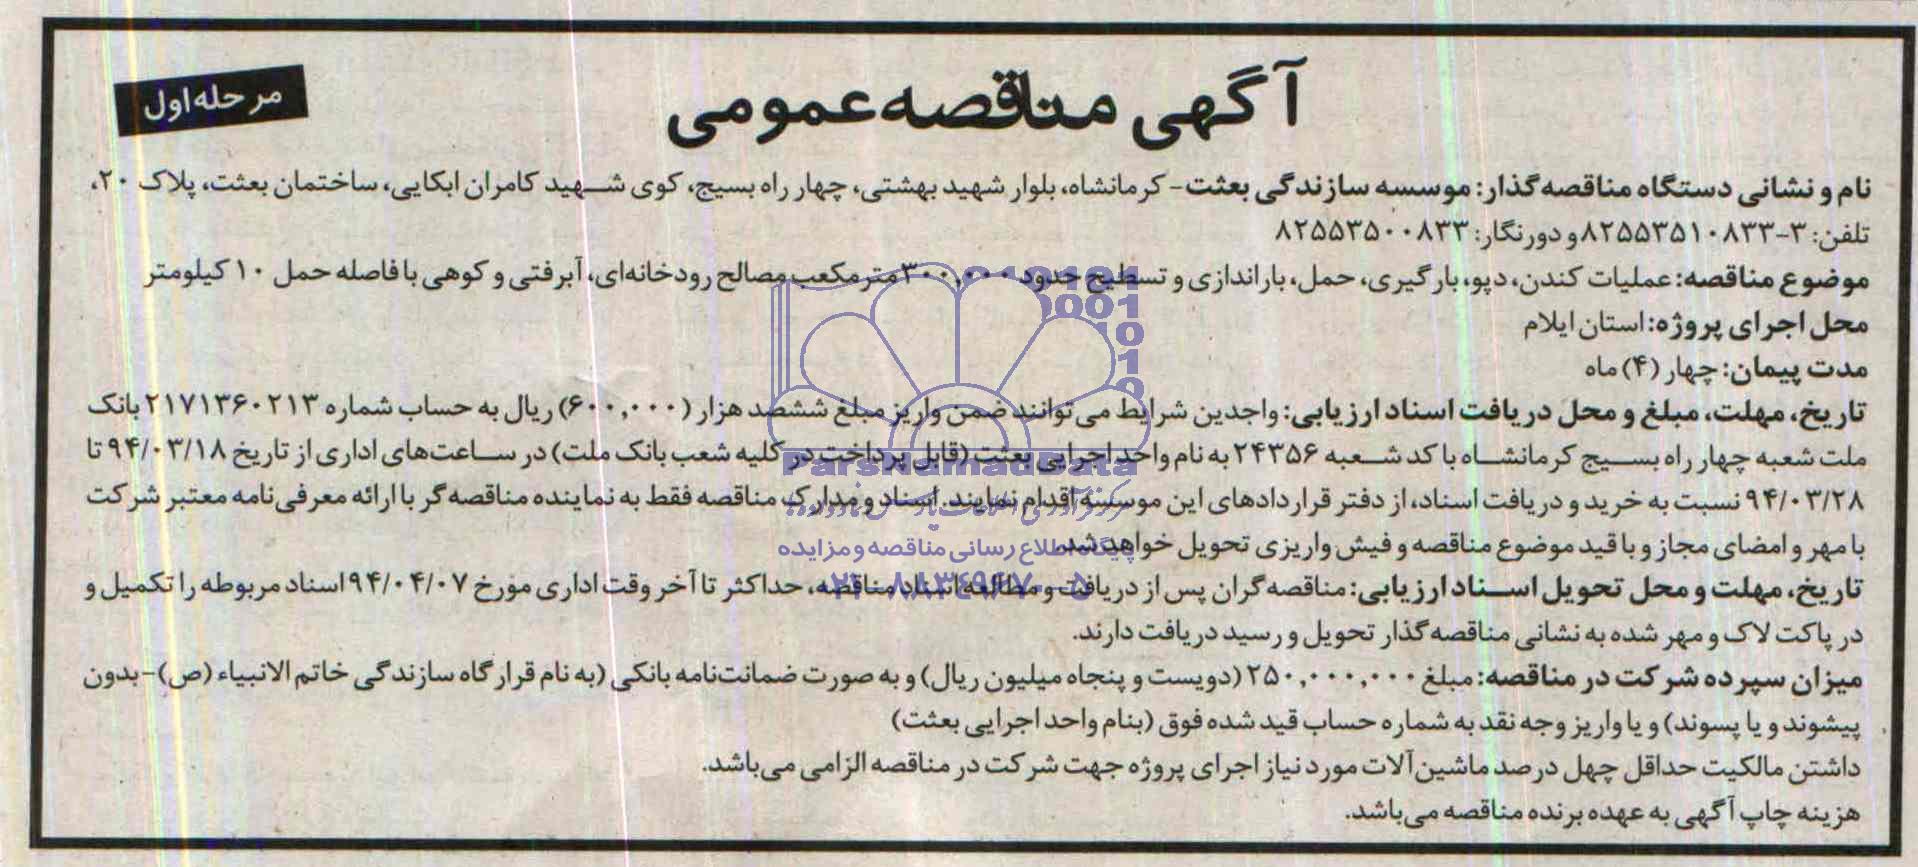 آگهی مناقصه عمومی
مرحله اول
نام و نشانی دستگاه مناقصه گذار: موسسه سازندگی بعثت- کرمانشاه، بلوار شهید بهشتی، چهار راه بسیج، کوی شهید کامران ابکایی، ساختمان بعثت، پلاک ۲۰،
تلفن: ۳-۸۲۵۵۳۵۱۰۸۳۳ و دورنگار: ۸۲۵۵۳۵۰۰۸۳۳
موضوع مناقصه: عملیات کندن، دپو، بارگیری، حمل، باراندازی و تسطیح حدود ۳۰۰,۰۰۰ متر مکعب مصالح رودخانه‌ای، آبرفتی و کوهی با فاصله حمل ۱۰ کیلومتر
محل اجرای پروژه: استان ایلام
مدت پیمان: چهار (۴) ماه
تاریخ، مهلت، مبلغ و محل دریافت اسناد ارزیابی: واجدین شرایط می‌توانند ضمن واریز مبلغ ششصد هزار (۶۰۰,۰۰۰) ریال به حساب شماره ۲۱۷۱۳۶۰۲۱۳ بانک
ملت شعبه چهار راه بسیج کرمانشاه با کد شعبه ۲۴۳۵۶ به نام واحد اجرایی بعثت (قابل پرداخت در کلیه شعب بانک ملت) در ساعت‌های اداری از تاریخ ۹۴/۰۳/۱۸ تا
۹۴/۰۳/۲۸ نسبت به خرید و دریافت اسناد، از دفتر قراردادهای این موسسه اقدام نمایند. اسناد و مدارک مناقصه فقط به نماینده مناقصه گر با ارائه معرفی‌نامه معتبر شرکت
با مهر و امضای مجاز و با قید موضوع مناقصه و فیش واریزی تحویل خواهد شد.
تاریخ، مهلت و محل تحویل اسناد ارزیابی: مناقصه گران پس از دریافت و مطالعه اسناد مناقصه، حداکثر تا آخر وقت اداری مورخ ۹۴/۰۴/۰۷ اسناد مربوطه را تکمیل و
در پاکت لاک و مهر شده به نشانی مناقصه گذار تحویل و رسید دریافت دارند.
میزان سپرده شرکت در مناقصه: مبلغ ۲۵۰,۰۰۰,۰۰۰ (دویست و پنجاه میلیون ریال) و به صورت ضمانت‌نامه بانکی (به نام قرارگاه سازندگی خاتم الانبیاء (ص)-بدون
پیشوند و یا پسوند) و یا واریز وجه نقد به شماره حساب قید شده فوق (بنام واحد اجرایی بعثت)
داشتن مالکیت حداقل چهل درصد ماشین‌آلات مورد نیاز اجرای پروژه جهت شرکت در مناقصه الزامی می‌باشد.
هزینه چاپ آگهی به عهده برنده مناقصه می‌باشد.
ParsNamadData
پایگاه اطلاع رسانی مناقصه و مزایده